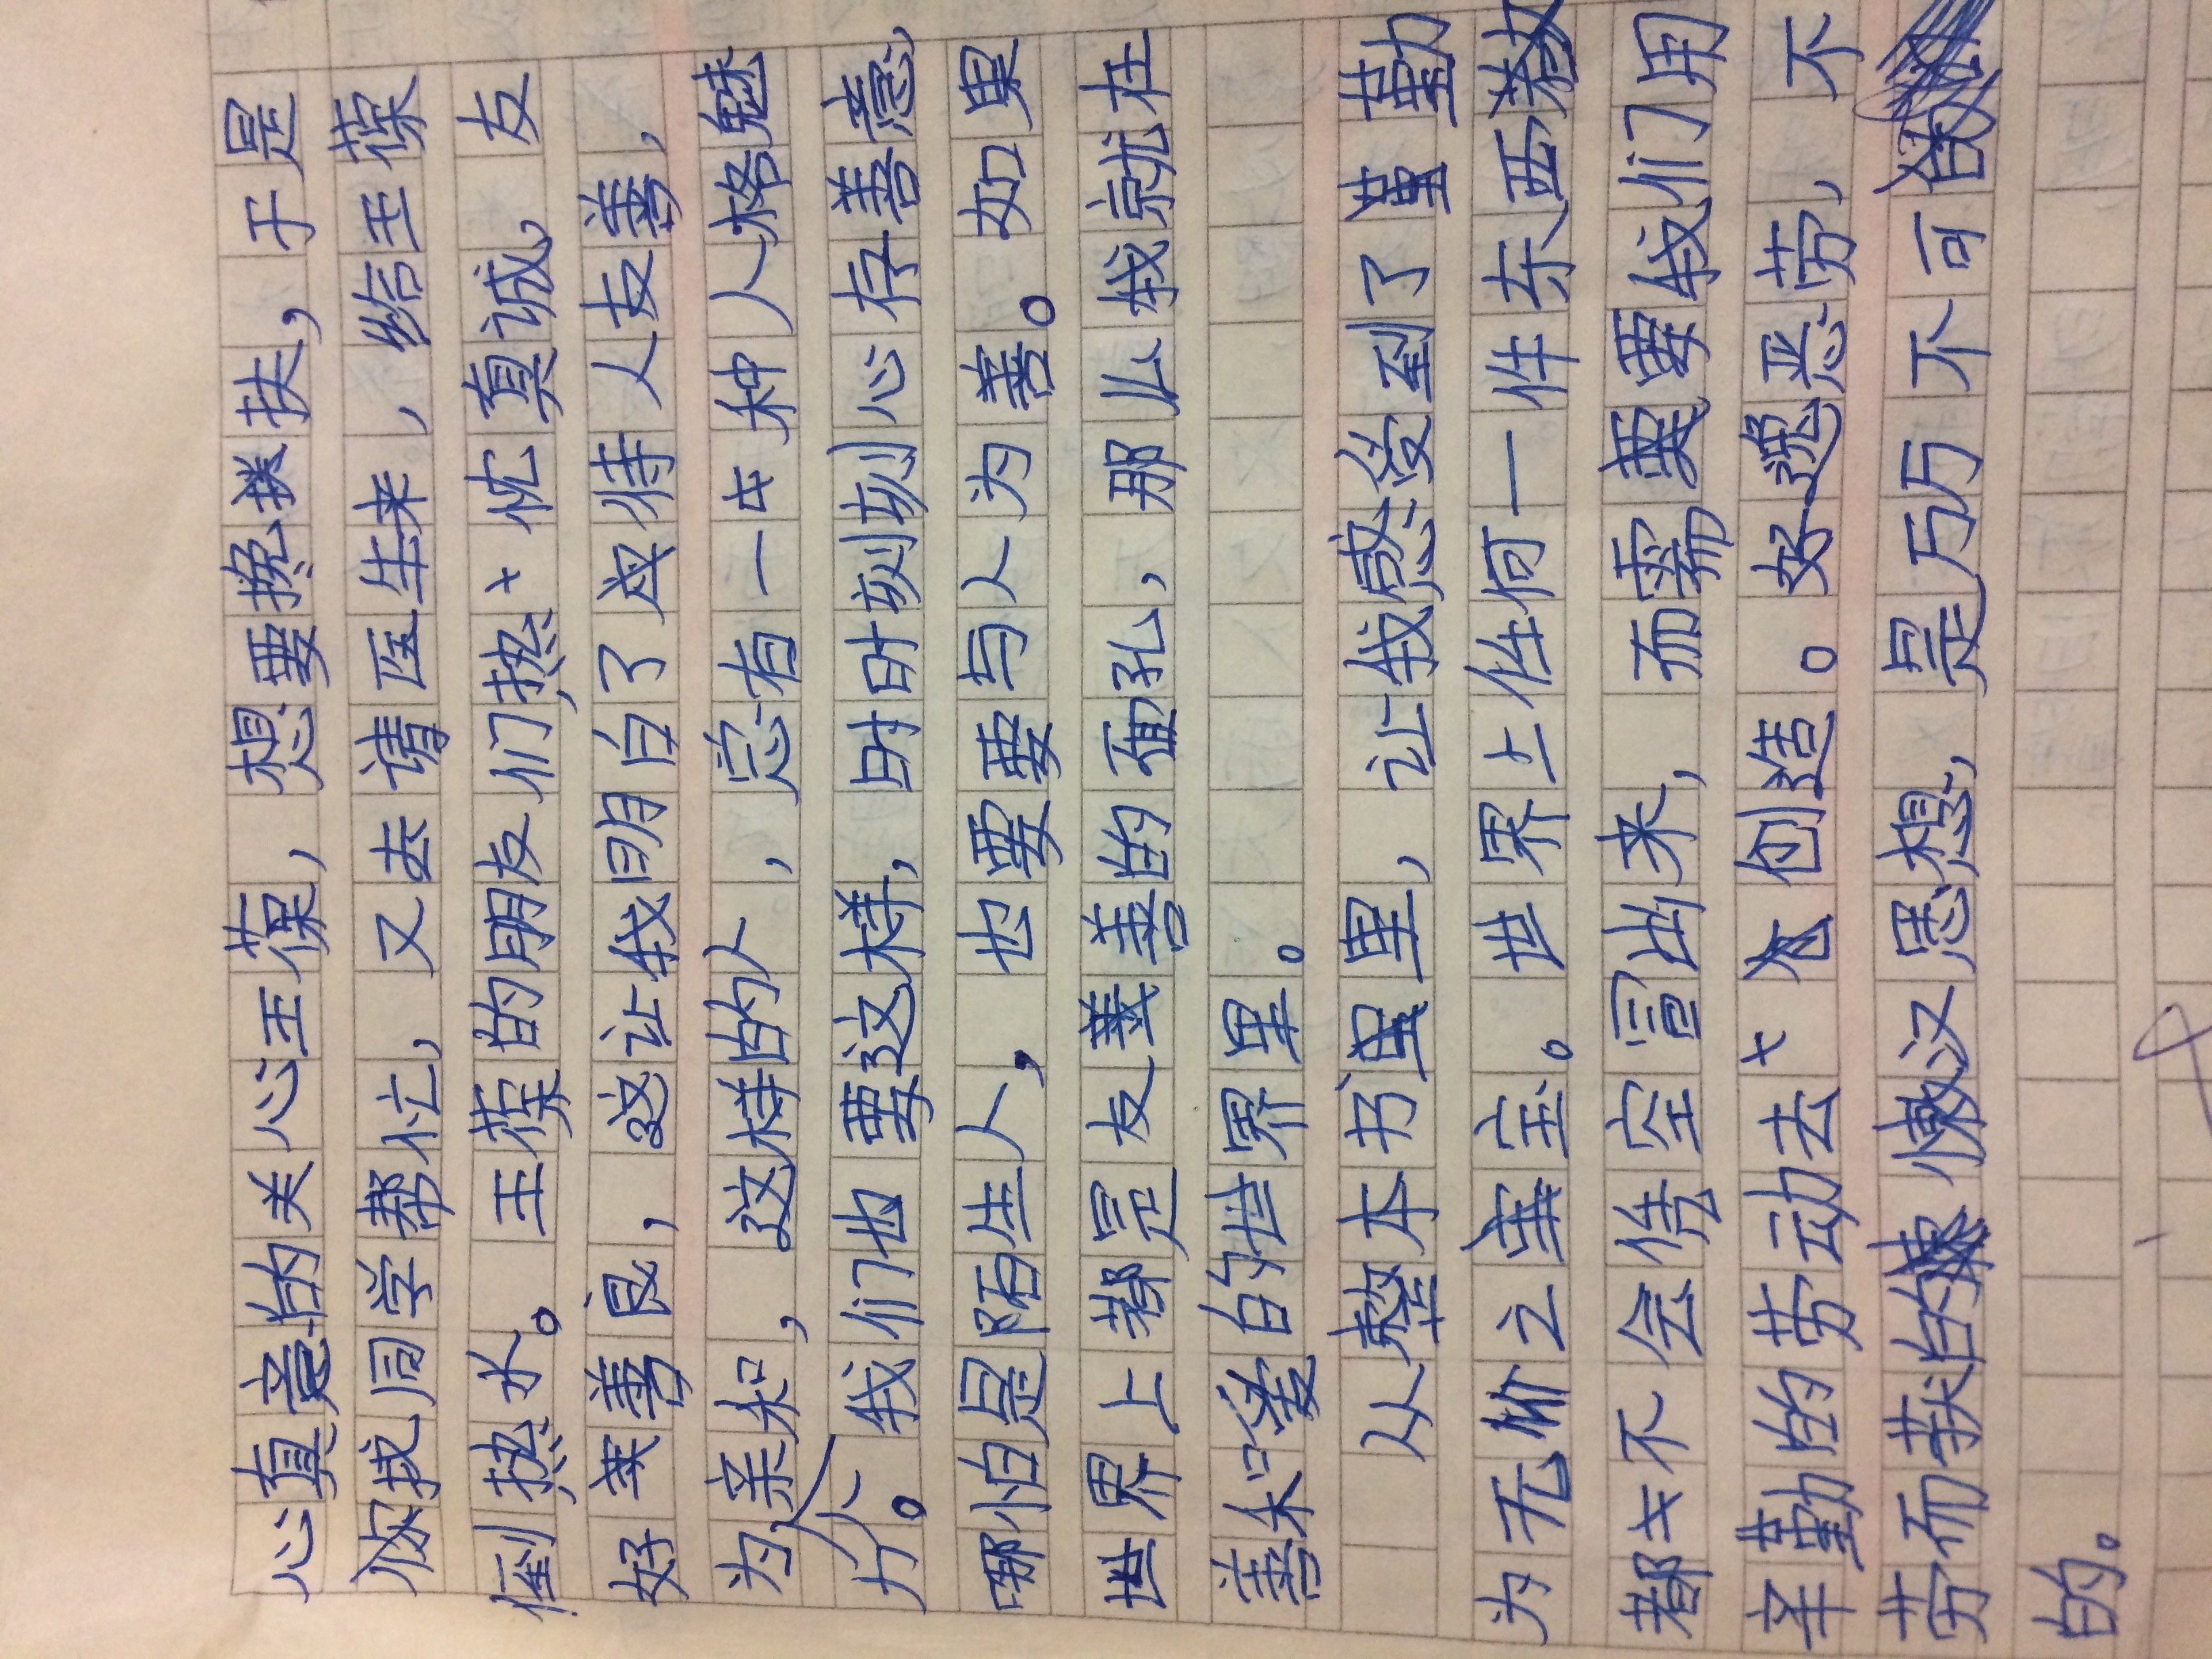 心真意的关心王葆，想要挽扶，于是
你找同学帮忙，又去请医生来，给王葆
倒热水。王葆的朋友们热忱真诚，友
好善良，这让我明白了应待人友善，
为人亲和，这样的人，总有一种人格魅
力。我们也要这样，时时刻刻心存善意，
哪怕是陌生人，也要要与人为善。如果
世界上都是友善的面孔，那么我就在
善和爱的世界里。
从整本书里，让我感受到了勤
为无价之宝。世界上任何一件东西
都不会凭空冒出来，而需要我们用
辛勤的劳动去创造。好逸恶劳，不
劳而获的懒汉思想，是万万不可
的。